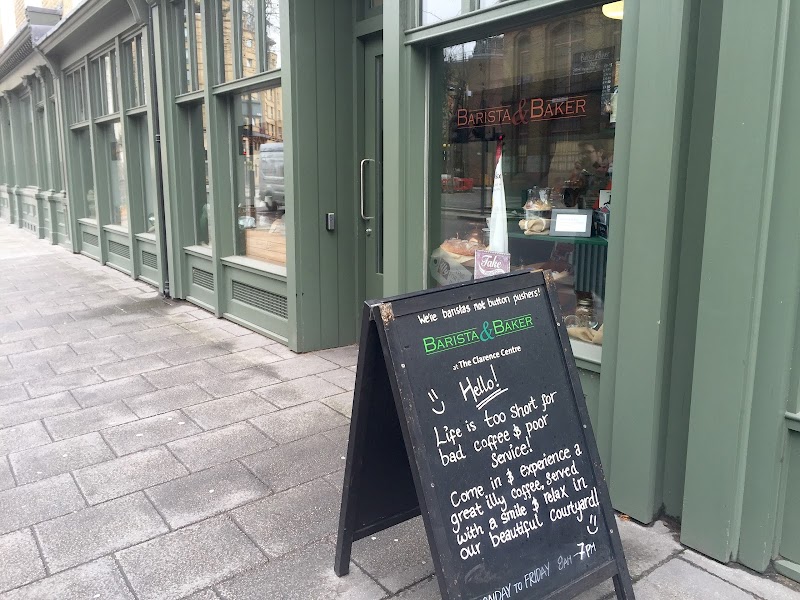 BARISTA & BAKER
Take
We're baristas not button pushers!
BARISTA & BAKER
at The Clarence Centre
Hello!
Life is too short for
bad coffee $ poor
service!
Come in $ experience a
great illy coffee, served
with a smile $ relax in
our beautiful courtyard!
TO FRIDAY 8AM-7PM